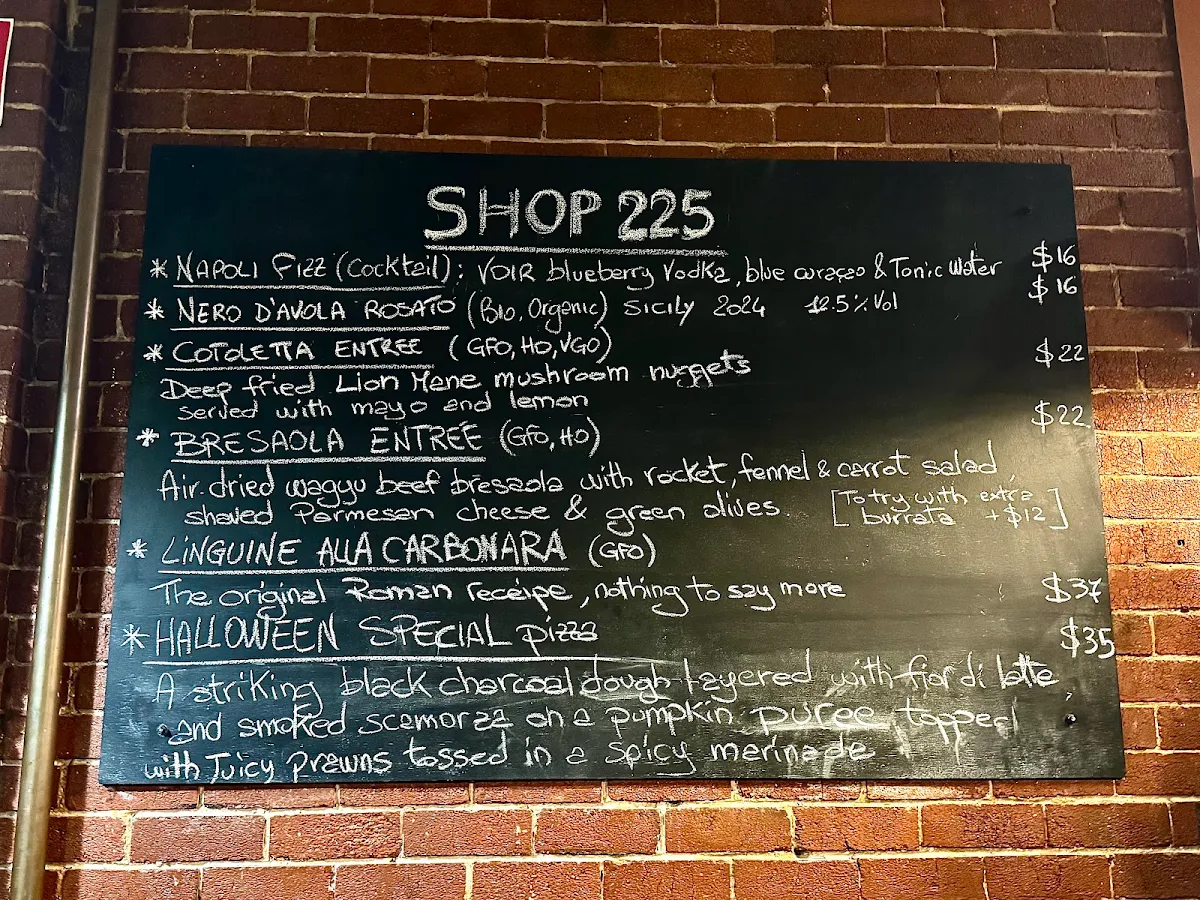 SHOP 225
* NAPOLI FIZZ (Cocktail): VOIR blueberry Vodka, blue curaçao & Tonic Water $16
* NERO D'AVOLA ROSATO (Bio, Organic) SICILY 2024 12.5% Vol $16
* COTOLETTA ENTREE (GFO, HO, VGO) $22
Deep fried Lion Mane mushroom nuggets
served with mayo and lemon
* BRESAOLA ENTRÉE (GFO, HO) $22
Air-dried wagyu beef bresaola with rocket, fennel & carrot salad,
shaved Parmesan cheese & green olives. [To try with extra
burrata +$12]
* LINGUINE ALLA CARBONARA (GFO)
The original Roman receipe, nothing to say more $37
* HALLOWEEN SPECIAL pizza $35
A striking black charcoal dough layered with fior di latte
and smoked scamorza on a pumpkin puree, topped
with Juicy prawns tossed in a spicy merinade